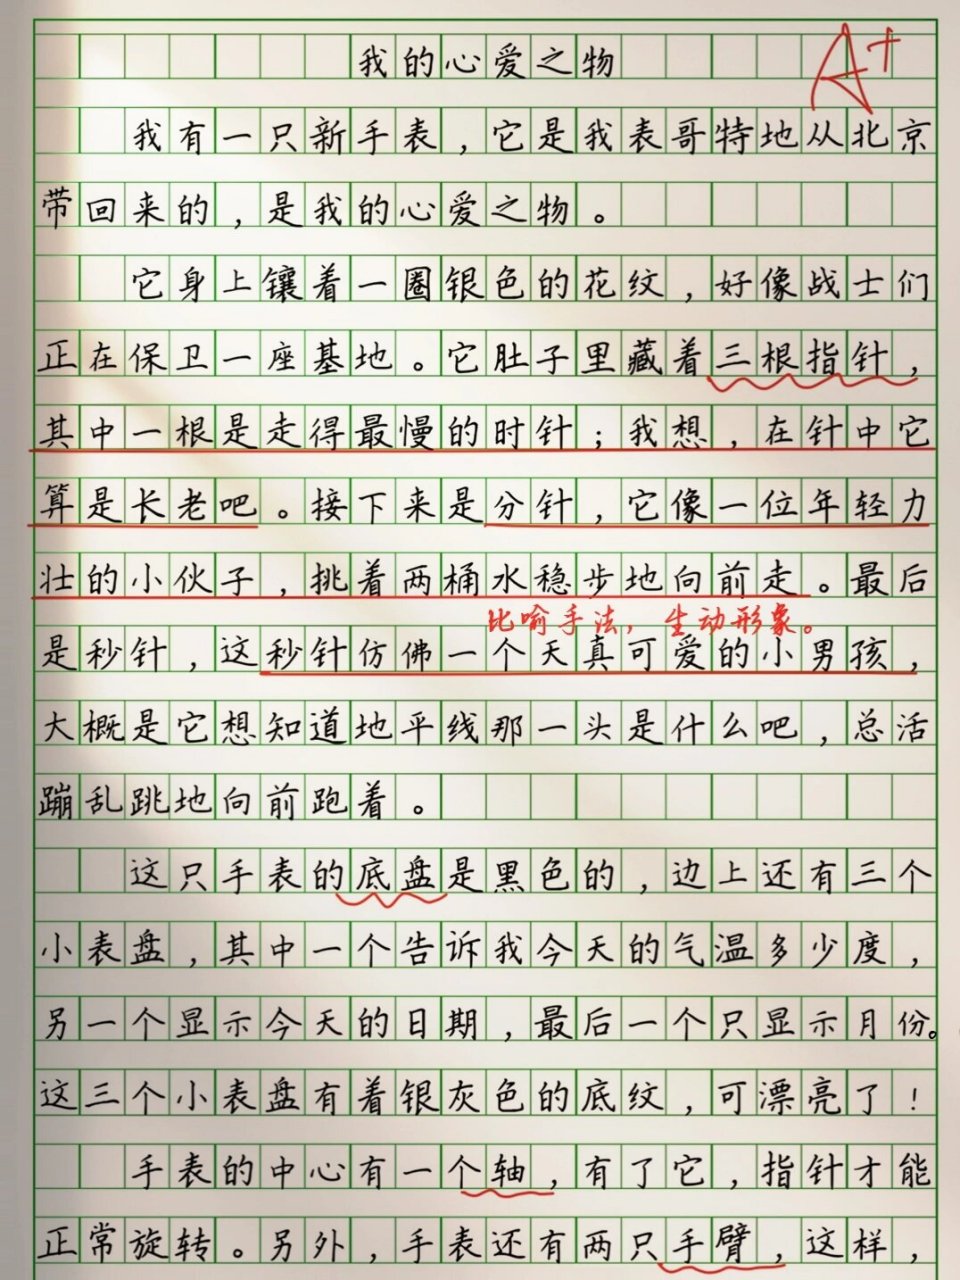 我的心爱之物
A+
我有一只新手表，它是我表哥特地从北京
带回来的，是我的心爱之物。
它身上镶着一圈银色的花纹，好像战士们
正在保卫一座基地。它肚子里藏着三根指针，
其中一根是走得最慢的时针；我想，在针中它
算是长老吧。接下来是分针，它像一位年轻力
壮的小伙子，挑着两桶水稳步地向前走。最后
比喻手法，生动形象。
是秒针，这秒针仿佛一个天真可爱的小男孩，
大概是它想知道地平线那一头是什么吧，总活
蹦乱跳地向前跑着。
这只手表的底盘是黑色的，边上还有三个
小表盘，其中一个告诉我今天的气温多少度，
另一个显示今天的日期，最后一个只显示月份。
这三个小表盘有着银灰色的底纹，可漂亮了！
手表的中心有一个轴，有了它，指针才能
正常旋转。另外，手表还有两只手臂，这样，